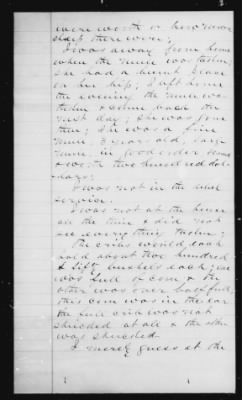 were worth
there were;
I was away from home
when the mule was taken;
she had a burnt brand
on her hip; I left home
the evening the mule was
taken & came back the
next day; she was gone
then; she was a fine
mule, 3 years old, large
mule, in good order
& worth two hundred dol-
lars;
I was not in the
service.
I was not at the house
all the time & did not
see everything taken;
The cribs would each
hold about two hundred
& fifty bushels each; one
was full of corn & the
other was over half full;
this corn was in the ear
the full crib was not
shucked at all & the other
was shucked.
I merely guess at the